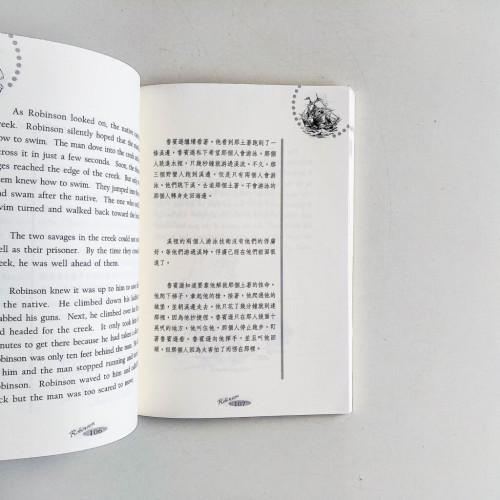 As Robinson looked on, the native
creek. Robinson silently hoped that the
how to swim. The man dove into the creek and
across it in just a few seconds. Soon, the
ages reached the edge of the creek. But only
them knew how to swim. They jumped into
and swam after the native. The one who
swim turned and walked back toward the
The two savages in the creek could not
well as their prisoner. By the time they
creek, he was well ahead of them.
Robinson knew it was up to him to save
the native. He climbed down his ladder
grabbed his guns. Next, he climbed over
and headed for the creek. It only took him
minutes to get there because he had taken a
Robinson was only ten feet behind the man.
him and the man stopped running and
Robinson. Robinson waved to him and
back but the man was too scared to move.
Robinson
106
魯賓遜繼續看著。他看到那土著跑到了一
條溪邊。魯賓遜私下希望那個人會游泳。那個
人跳進水裡，只幾秒鐘就游過溪流。不久，那
三個野蠻人跑到溪邊。但是只有兩個人會游
泳。他們跳下溪，去追那個土著。不會游泳的
那個人轉身走回海邊。
溪裡的兩個人游泳技術沒有他們的俘虜
好。等他們游過溪時，俘虜已經在他們前面很
遠了。
魯賓遜知道要靠他解救那個土著的性命。
他爬下梯子，拿起他的槍。接著，他爬過他的
城堡，並朝溪邊走去。他只花了幾分鐘就到達
那裡，因為他抄捷徑。魯賓遜只在那人後面十
英呎的地方。他叫住他，那個人停止跑步，盯
著魯賓遜看。魯賓遜向他揮手，並且叫他回
頭，但那個人因為太害怕了而愣在那裡。
Robinson
107